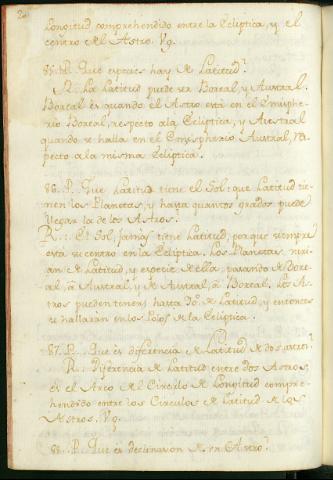 Longitud comprehendido entre la Ecliptica, y el
centro del Astro. Vg.
85. P. Que especies hay de Latitud?
R. La Latitud puede ser Boreal, y Austral.
Boreal es quando el Astro está en el Emisphe-
rio Boreal, respecto ala Ecliptica, y Austral
quando se halla en el Emispherio Austral, res-
pecto a la misma Ecliptica.
86. P. Que Latitud tiene el Sol: que Latitud tie-
nen los Planetas, y hasta quantos grados puede
llegar la de los Astros?
R. El Sol, jamás tiene Latitud, porque siempre
está su centro en la Ecliptica. Los Planetas, va-
rian de Latitud, y especie de ella, pasando de Bore-
al, à Austral, y de Austral, à Boreal. Los As-
tros pueden tener, hasta 90 de Latitud, y entonces
se hallarán en los Polos de la Ecliptica.
87. P. Que és diferencia de Latitud de dos astros?
R. Diferencia de Latitud entre dos Astros,
és el Arco del Circulo de Longitud compre-
hendido entre los Circulos de Latitud de los
Astros. Vg.
88. P. Que és declinacion de un Astro?